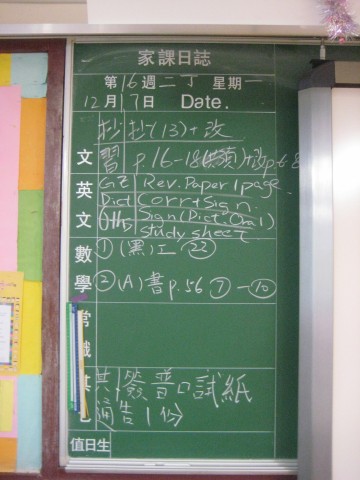 家課日誌
第16週二丁 星期一
12月17日 Date.
抄 抄(13)+改
文 習 p.16-18(雙頭)+改p.6-8
英 GE Rev. Paper 1 page.
Dict Corr+Sign.
文 Oth Sign (Dict+Oral)
study sheet
數 ①(黑)工 22
學 ②(A)書p.56 ⑦-⑩
常
識
其 其 簽普口試紙
通告1份
值日生